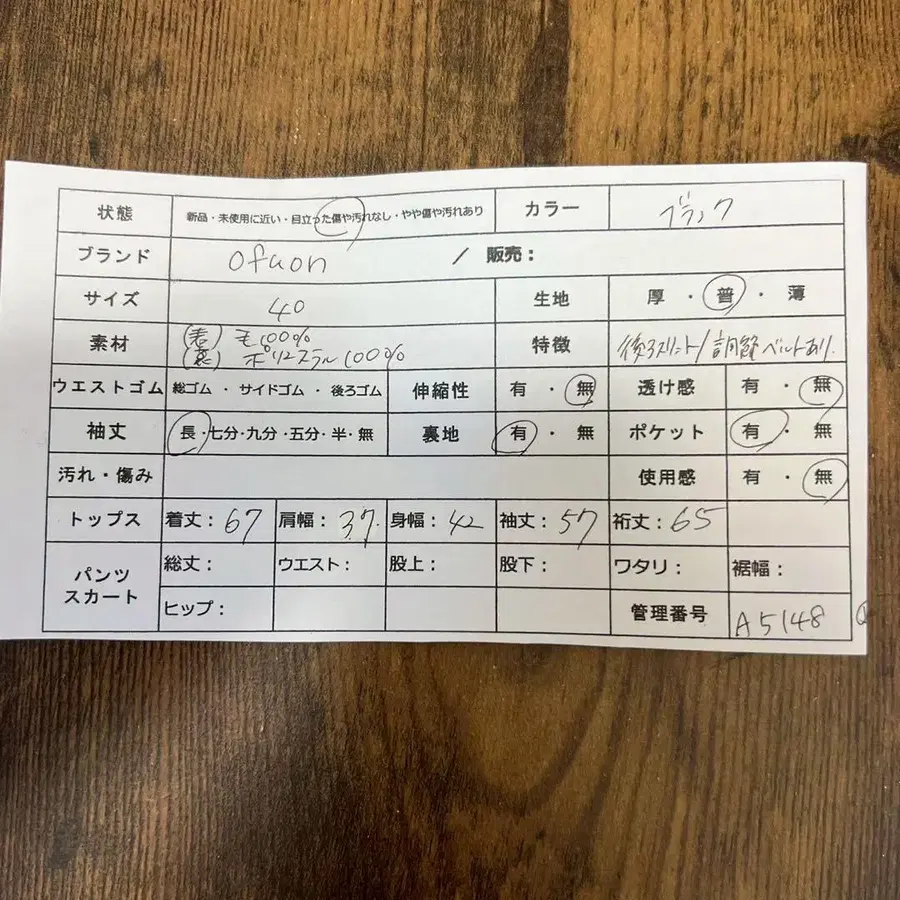 状態 新品・未使用に近い・目立った傷や汚れなし・やや傷や汚れあり カラー ブラック
ブランド ofuon / 販売：
サイズ 40 生地 厚・普・薄
素材 (表) 毛100% (裏) ポリエステル100% 特徴 後ろスリット/調節ベルトあり.
ウエストゴム 総ゴム・サイドゴム・後ろゴム 伸縮性 有・無 透け感 有・無
袖丈 長・七分・九分・五分・半・無 裏地 有・無 ポケット 有・無
汚れ・傷み 使用感 有・無
トップス 着丈：67 肩幅：37. 身幅：42 袖丈：57 裄丈：65
パンツ スカート 総丈： ウエスト： 股上： 股下： ワタリ： 裾幅：
ヒップ： 管理番号 A5148